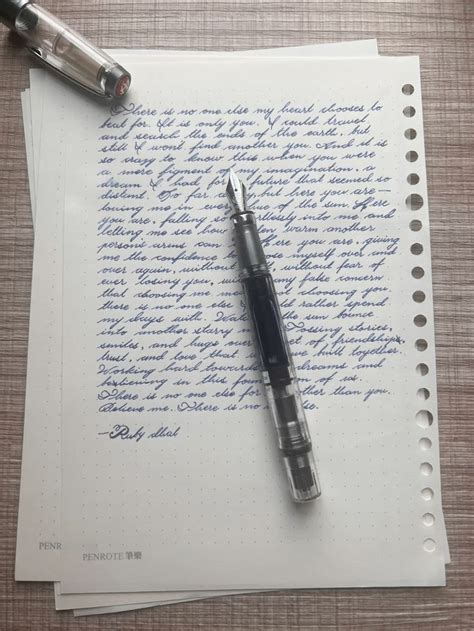 There is no one else my heart chooses to
beat for. It is only you. I could travel
and search the ends of the earth, but
still I wont find another you. And it is
so crazy to know this when you were
a mere figment of my imagination, a
dream I had for future that seemed so
distant. So far but here you are
loving me in every of the sun. Here
you are, falling so into me and
letting me see how warm another
person's arms can Here you are, giving
me the confidence to myself over and
over again, without without fear of
ever losing you, my false concern
that choosing me choosing you,
there is no one else rather spend
my days with. the sun bounce
into another starry Tossing stories,
smiles, and hugs over of friendship,
trust, and love that built together.
Working hard towards dreams and
in this of us.
There is no one else for other than you.
Believe me. There is no
—Ruby dhal
PENR
PENROTE 筆樂